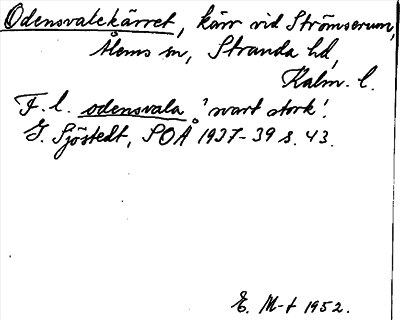 Odensvalekärret, kärr vid Strömserum,
Ålems sn, Stranda hd,
Kalm. l.
F. l. odensvala 'svart stork'.
G. Sjöstedt, SOÅ 1937-39 s. 43.
E. M-t 1952.